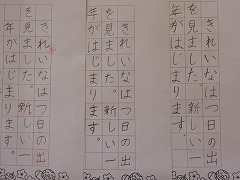 きれいなはつ日の出
を見ました。新しい一
年がはじまります。
きれいなはつ日の出
を見ました。新しい一
年がはじまります。
きれいなはつ日の出
を見ました。新しい一
年がはじまります。